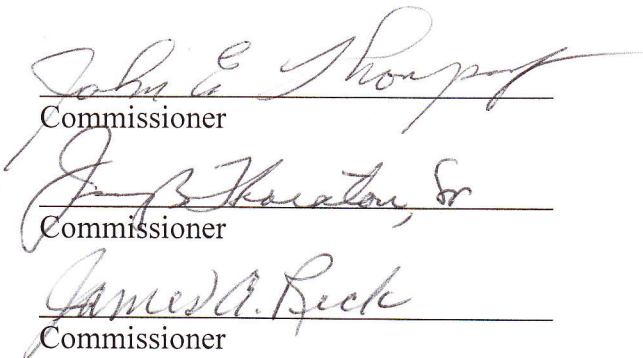 John E Thompson
Commissioner
Jim B Thornton, Sr
Commissioner
James A. Reck
Commissioner